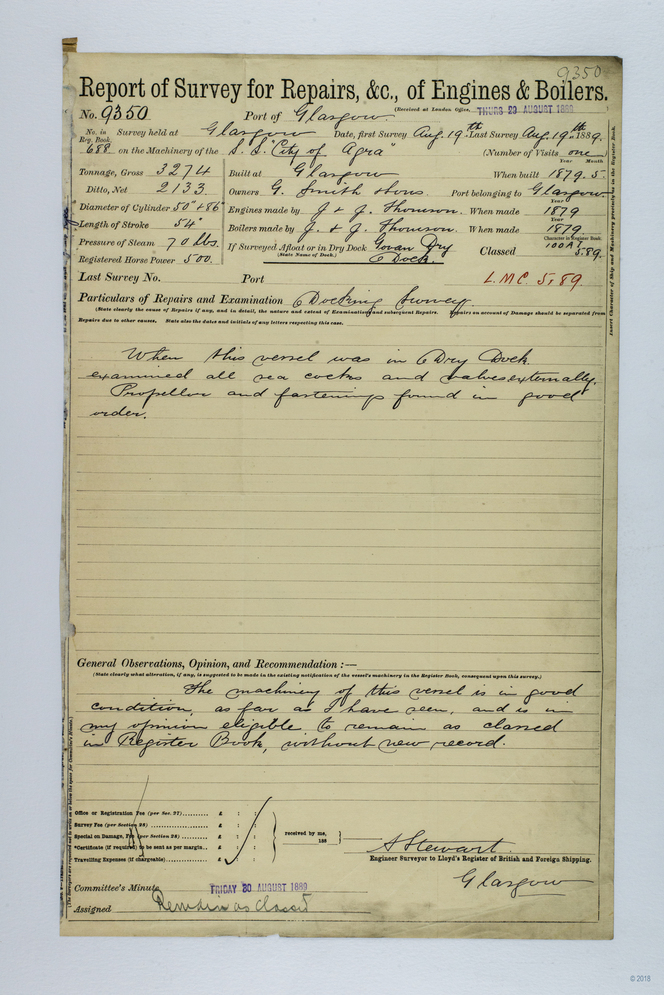 9350
Report of Survey for Repairs, &c., of Engines & Boilers.
(Received at London Office, THURS 29 AUGUST 1889
No. 9350 Port of Glasgow
No. in Reg. Book. 688 Survey held at Glasgow Date, first Survey Aug. 19th Last Survey Aug 19th 1889.
on the Machinery of the S. S. "City of Agra" (Number of Visits one)
Tonnage, Gross 3274 Built at Glasgow When built Year 1879. Month 5
Ditto, Net 2133 Owners G. Smith & Sons. Port belonging to Glasgow
Diameter of Cylinder 50" & 86" Engines made by J. & J. Thomson. When made Year 1879
Length of Stroke 54" Boilers made by J. & J. Thomson. When made Year 1879
Pressure of Steam 70 lbs. If Surveyed Afloat or in Dry Dock Govan Dry Dock. Classed Character in Register Book 100 A1 5.89.
(State Name of Dock.)
Registered Horse Power 500.
Last Survey No. Port L.M.C. 5,89.
Particulars of Repairs and Examination Docking Survey.
(State clearly the cause of Repairs if any, and in detail, the nature and extent of Examination and subsequent Repairs. Repairs on account of Damage should be separated from
Repairs due to other causes. State also the dates and initials of any letters respecting this case.
When this vessel was in Dry Dock
examined all sea cocks and valves externally.
Propellor and fastenings found in good
order.
General Observations, Opinion, and Recommendation :—
(State clearly what alteration, if any, is suggested to be made in the existing notification of the vessel's machinery in the Register Book, consequent upon this survey.)
The machinery of this vessel is in good
condition, as far as I have seen, and is in
my opinion eligible to remain as classed
in Register Book, without new record.
Office or Registration Fee (per Sec. 27).......... £ : :
Survey Fee (per Section 28).......... £ : :
Special on Damage, Fee (per Section 28)........ £ : :
*Certificate (if required) to be sent as per margin.. £ : :
Travelling Expenses (if chargeable).......... £ : :
received by me,
188
A Stewart.
Engineer Surveyor to Lloyd's Register of British and Foreign Shipping.
Glasgow
Committee's Minute FRIDAY 30 AUGUST 1889
Assigned Remain as classed
Insert Character of Ship and Machinery precisely as in the Register Book.
© 2018